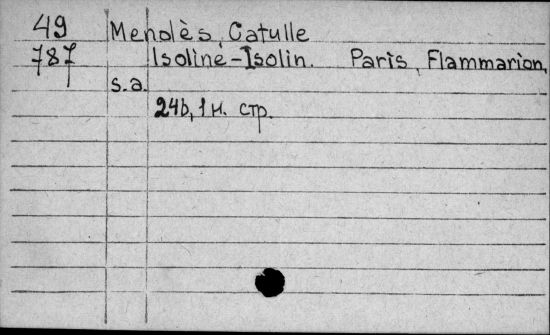 49 Mendès, Catulle
787 Isoline-Isolin. Paris, Flammarion,
s.a.
246, 1 н. стр.